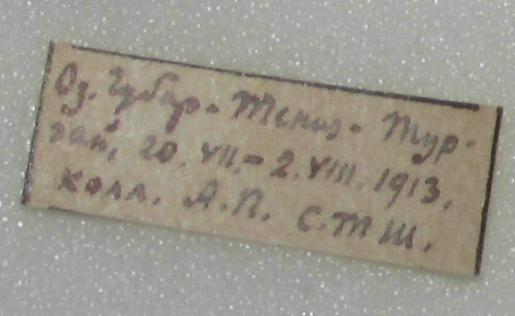 Оз. Чубар-Тениз-Тур-
гай, 20.VII.-2.VIII.1913.
колл. А.П. С.Т Ш.